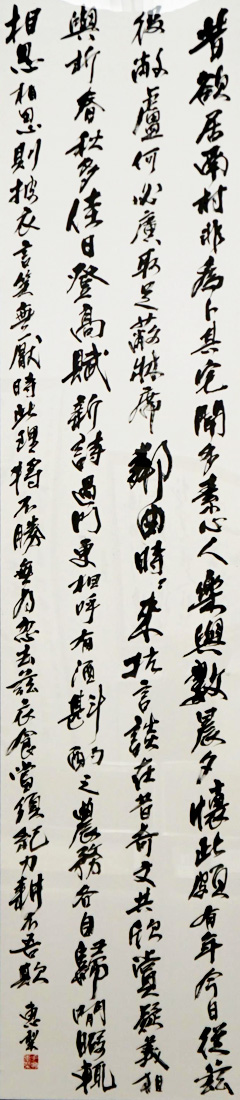 昔欲居南村非為卜其宅聞多素心人樂與數晨夕懷此頗有年今日從茲
役敝廬何必廣取足蔽牀席鄰曲時〻來抗言談在昔奇文共欣賞疑義相
與析春秋多佳日登高賦新詩過門更相呼有酒斟酌之農務各自歸閒暇輒
相思相思則披衣言笑無厭時此理將不勝無為忽去茲衣食當須紀力耕不吾欺